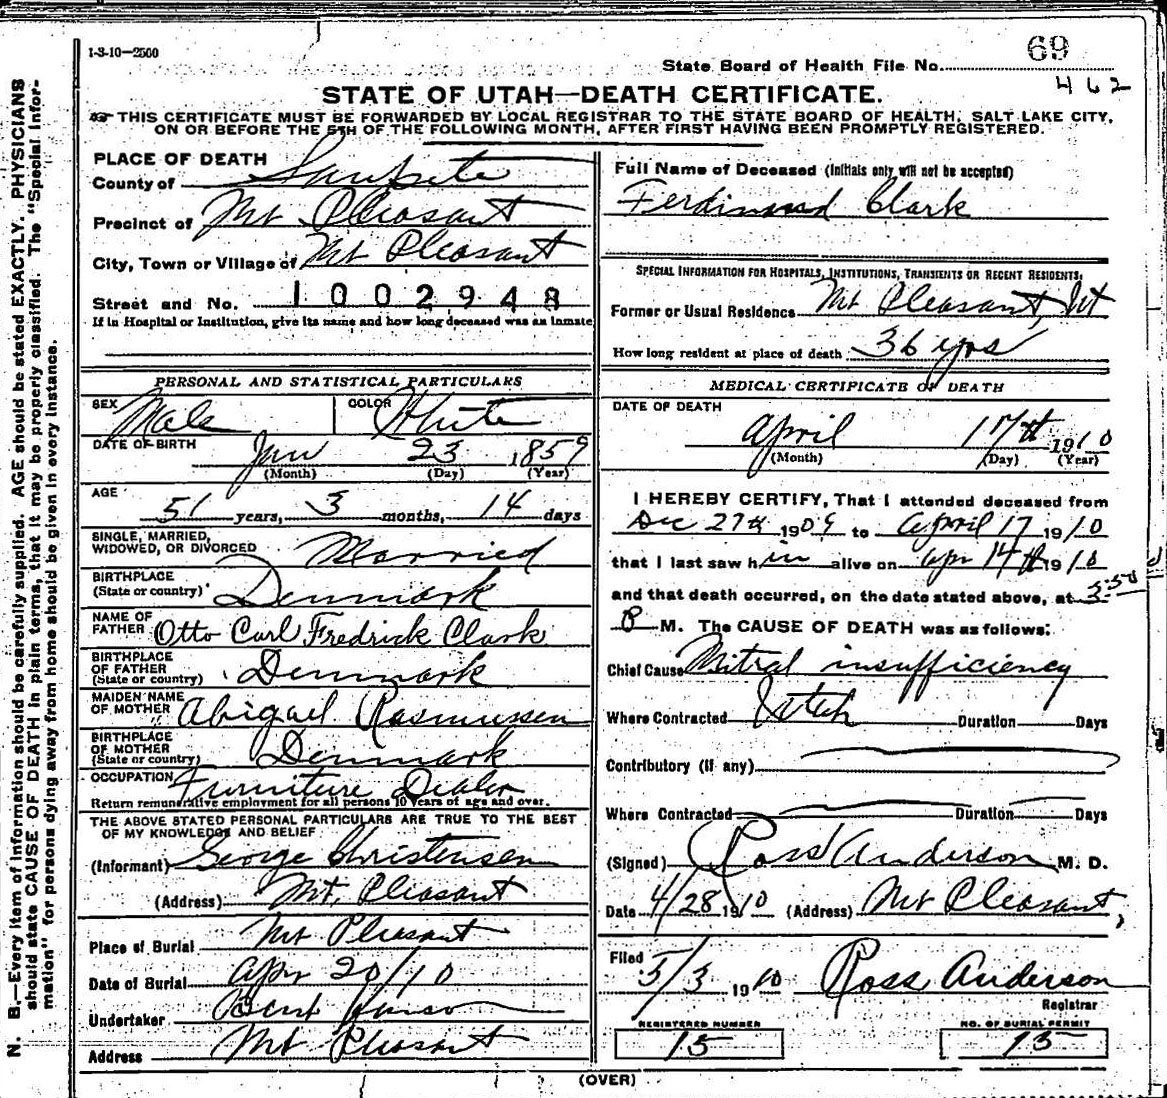 1-3-10—2500
69
State Board of Health File No.
462
STATE OF UTAH—DEATH CERTIFICATE.
THIS CERTIFICATE MUST BE FORWARDED BY LOCAL REGISTRAR TO THE STATE BOARD OF HEALTH, SALT LAKE CITY,
ON OR BEFORE THE 5TH OF THE FOLLOWING MONTH, AFTER FIRST HAVING BEEN PROMPTLY REGISTERED.
PLACE OF DEATH
County of Sanpete
Precinct of Mt Pleasant
City, Town or Village of Mt Pleasant
Street and No. 1002948
If in Hospital or Institution, give its name and how long deceased was an inmate
PERSONAL AND STATISTICAL PARTICULARS
SEX Male COLOR White
DATE OF BIRTH Jan 23 1859
(Month) (Day) (Year)
AGE
51 years, 3 months, 14 days
SINGLE, MARRIED,
WIDOWED, OR DIVORCED Married
BIRTHPLACE
(State or country) Denmark
NAME OF
FATHER Otto Carl Fredrick Clark
BIRTHPLACE
OF FATHER
(State or country) Denmark
MAIDEN NAME
OF MOTHER Abigael Rasmussen
BIRTHPLACE
OF MOTHER
(State or country) Denmark
OCCUPATION Furniture Dealer
Return remunerative employment for all persons 10 years of age and over.
THE ABOVE STATED PERSONAL PARTICULARS ARE TRUE TO THE BEST
OF MY KNOWLEDGE AND BELIEF
(Informant) George Christensen
(Address) Mt. Pleasant
Place of Burial Mt Pleasant
Date of Burial Apr 20/10
Undertaker Bent Hanson
Address Mt Pleasant
Full Name of Deceased (Initials only will not be accepted)
Ferdinand Clark
SPECIAL INFORMATION FOR HOSPITALS, INSTITUTIONS, TRANSIENTS OR RECENT RESIDENTS.
Former or Usual Residence Mt Pleasant, Ut
How long resident at place of death 36 yrs
MEDICAL CERTIFICATE OF DEATH
DATE OF DEATH
April 17th 1910
(Month) (Day) (Year)
I HEREBY CERTIFY, That I attended deceased from
Dec 27th 1909 to April 17 1910
that I last saw him alive on Apr 14th 1910
and that death occurred, on the date stated above, at 5:50
P M. The CAUSE OF DEATH was as follows:
Chief Cause Mitral insufficiency
Where Contracted Utah Duration Days
Contributory (if any)
Where Contracted Duration Days
(Signed) Ross Anderson M. D.
Date 4/28 1910 (Address) Mt Pleasant,
Filed 5/3 1910 Ross Anderson
Registrar
REGISTERED NUMBER NO. OF BURIAL PERMIT
15 15
(OVER)
N. B.—Every item of information should be carefully supplied. AGE should be stated EXACTLY. PHYSICIANS
should state CAUSE OF DEATH in plain terms, that it may be properly classified. The "Special Infor-
mation" for persons dying away from home should be given in every instance.